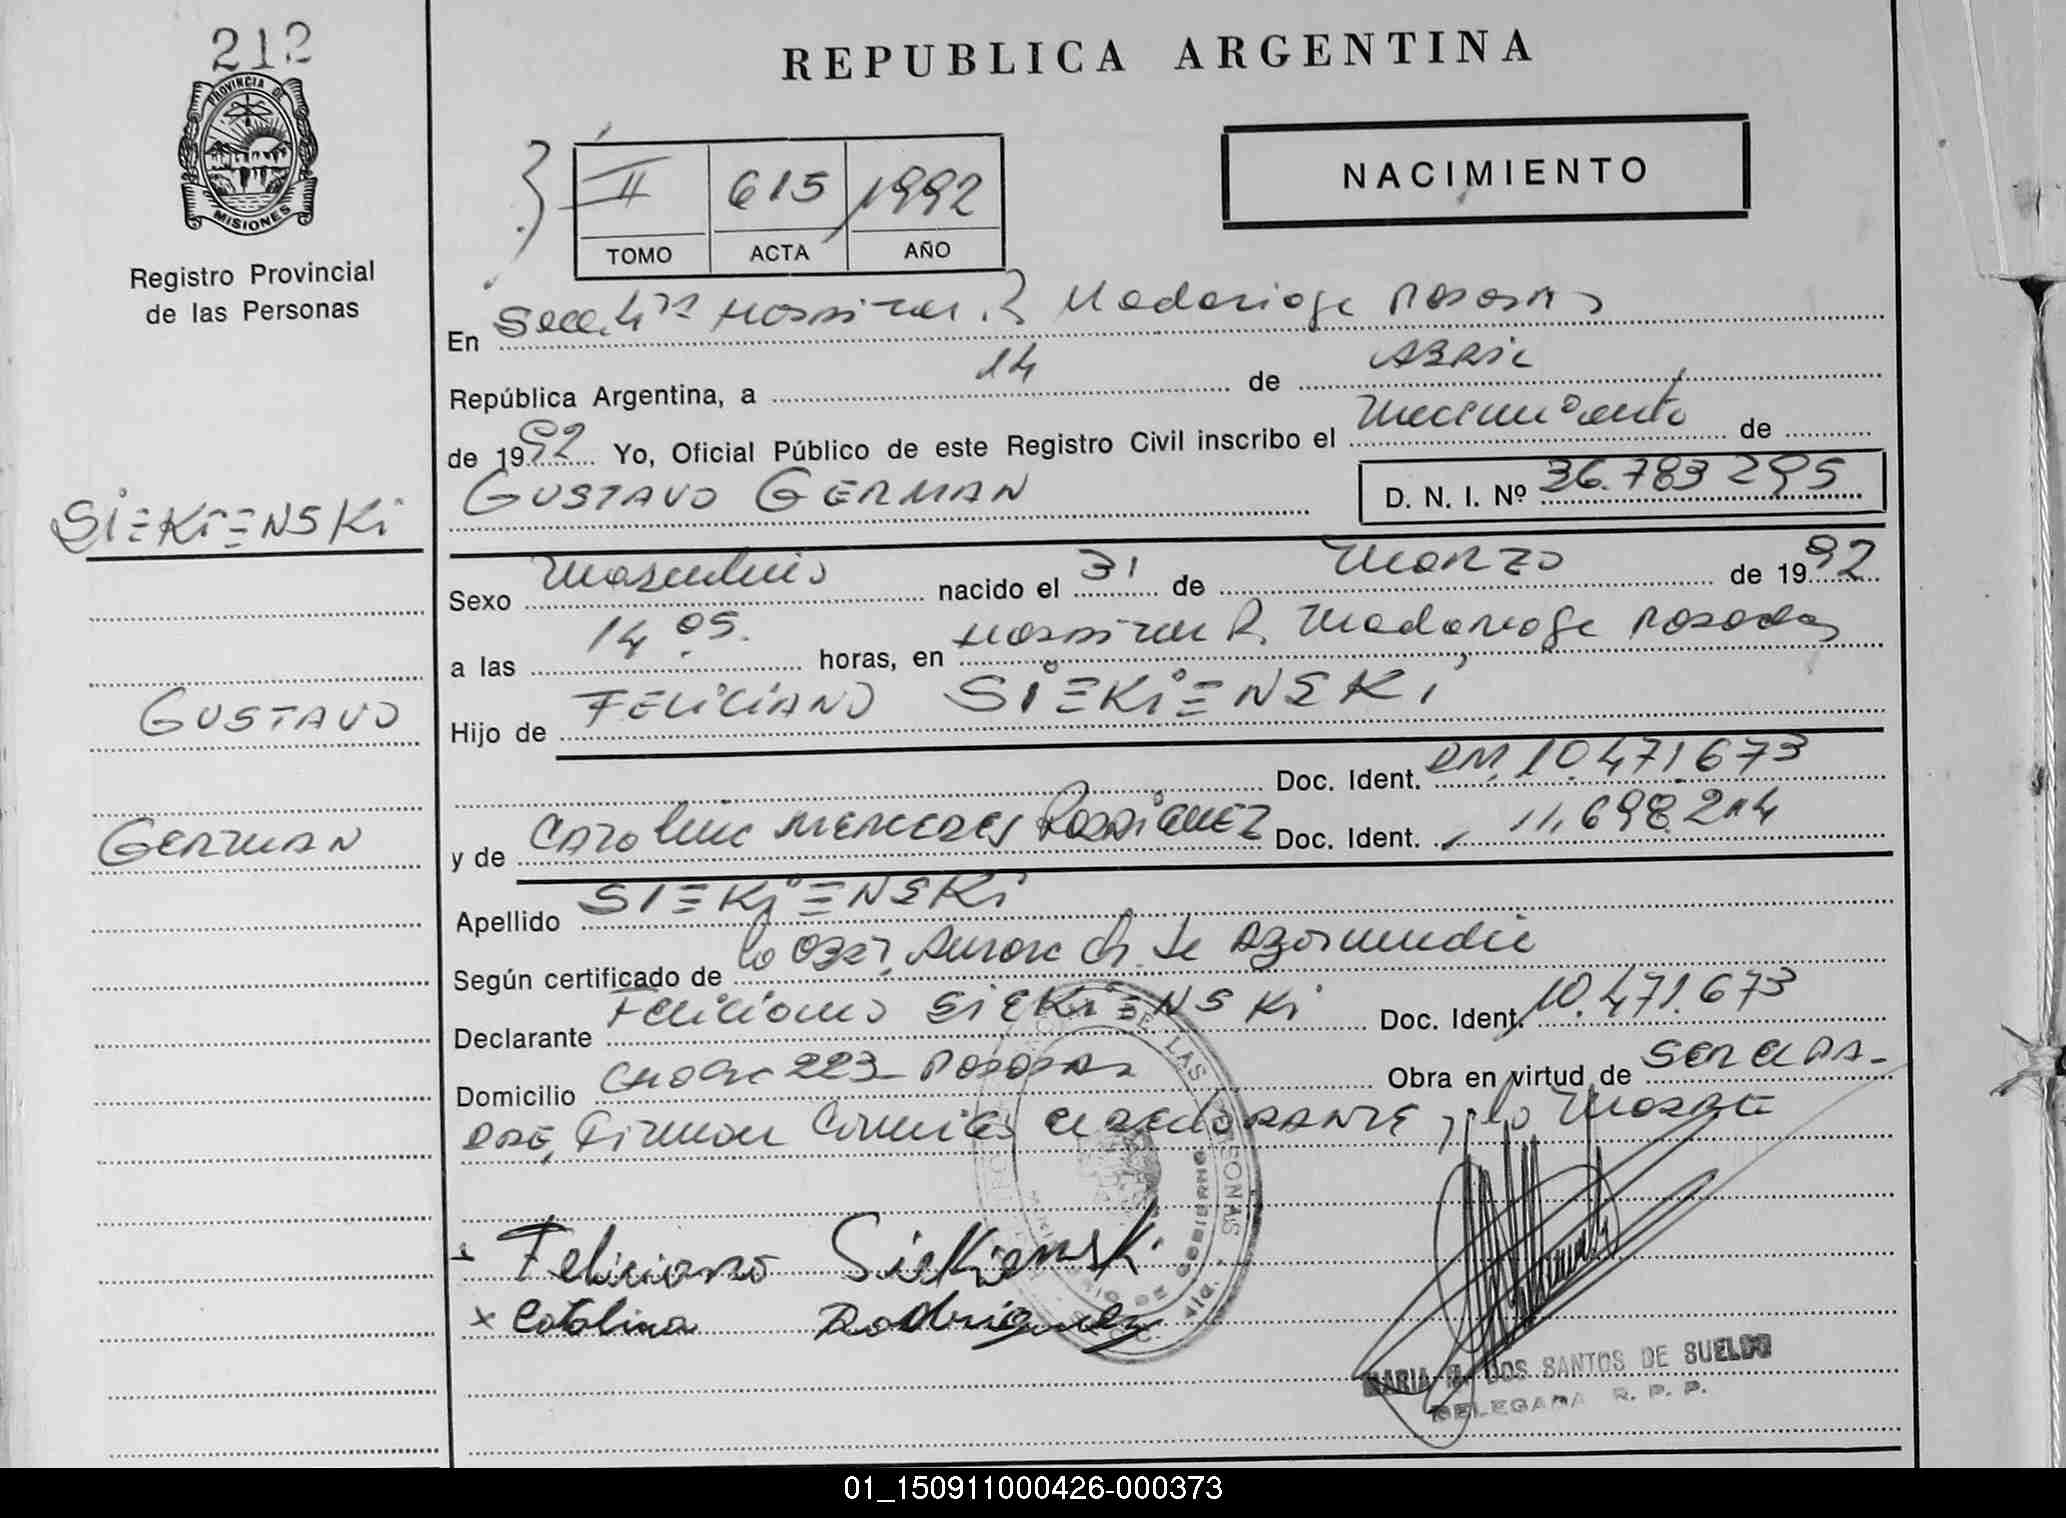 212
REPUBLICA ARGENTINA
PROVINCIA DE
MISIONES
Registro Provincial
de las Personas
II 615 1992
TOMO ACTA AÑO
NACIMIENTO
En Secc. 4ta Hospital R Madariaga Posadas
República Argentina, a 14 de ABRIL
de 1992 Yo, Oficial Público de este Registro Civil inscribo el nacimiento de
GUSTAVO GERMAN D. N. I. Nº 36.783 295
SIEKIENSKI
GUSTAVO
GERMAN
Sexo Masculino nacido el 31 de MARZO de 1992
a las 14 05. horas, en Hospital R. Madariaga Posadas
Hijo de FELICIANO SIEKIENSKI
Doc. Ident. DNI. 10.471.673
y de MERCEDES RODRIGUEZ Doc. Ident. 11.698.214
Apellido SIEKIENSKI
Según certificado de la Obst, Aurora Ch. de
Declarante Feliciano SIEKIENSKI Doc. Ident. 10.471.673
Domicilio 223 POSADAS Obra en virtud de SER EL PA-
DRE, Firman el DECLARANTE y la MADRE
Feliciano Siekienski
x Catalina Rodriguez
DE LAS PERSONAS
DE GOBIERNO
MARIA DOS SANTOS DE SUELDO
DELEGADA R. P. P.
01_150911000426-000373